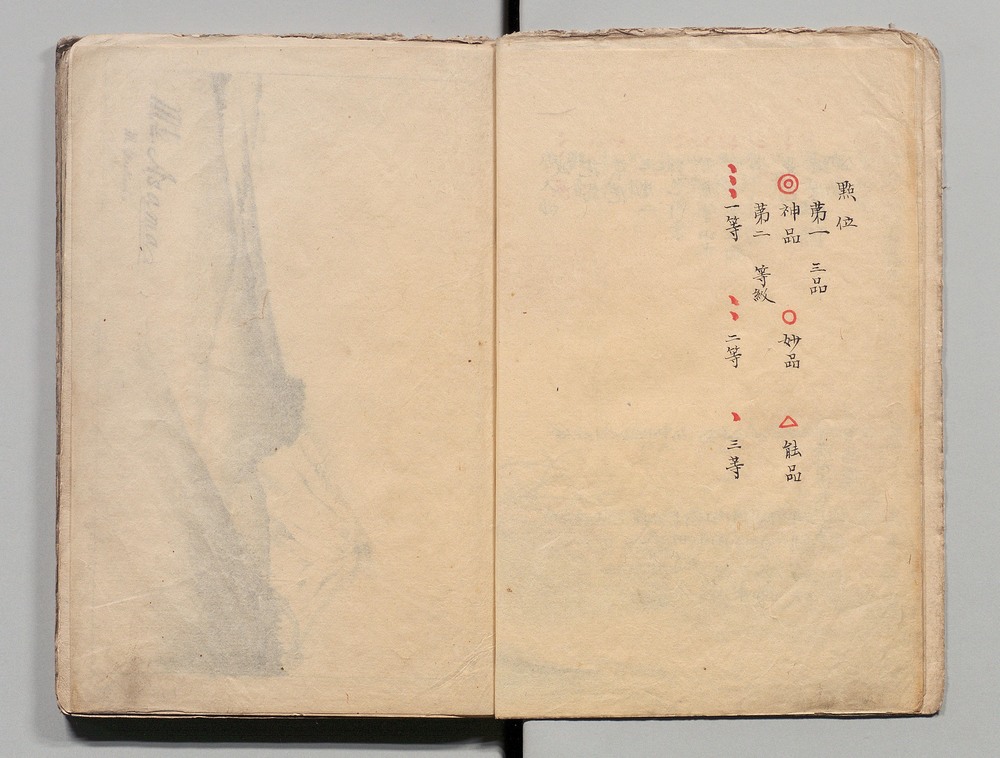 點位
苐一 三品
◎神品 ○妙品 △能品
苐二 等級
一等 二等 三等
Mt. Asama